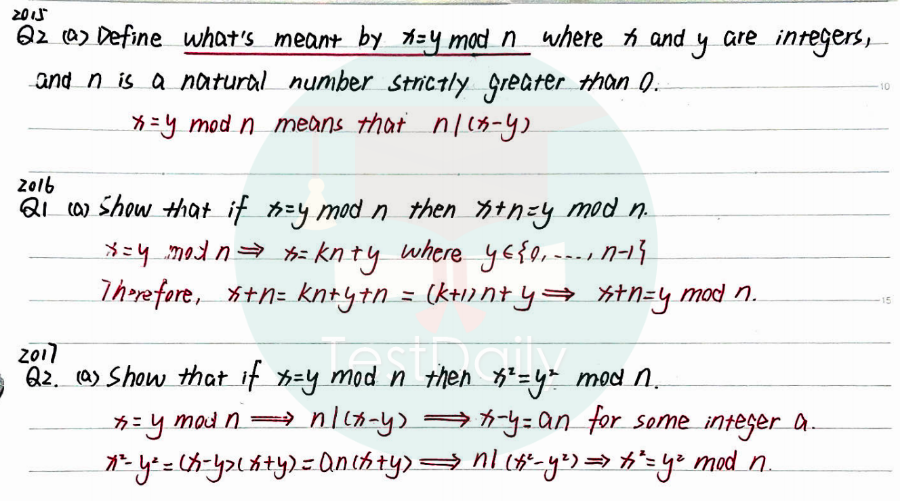 2015
Q2 (a) Define what's meant by x=y mod n where x and y are integers,
and n is a natural number strictly greater than 0.
10
x=y mod n means that n|(x-y)
2016
Q1 (a) Show that if x=y mod n then x+n=y mod n.
x=y mod n ⟹ x=kn+y where y∈{0, ..., n-1}
Therefore, x+n= kn+y+n = (k+1)n+y ⟹ x+n=y mod n.
15
TestDaily
2017
Q2. (a) Show that if x=y mod n then x²=y² mod n.
x=y mod n ⟹ n|(x-y) ⟹ x-y=an for some integer a.
x²-y²=(x-y)(x+y)=an(x+y) ⟹ n|(x²-y²) ⟹ x²=y² mod n.